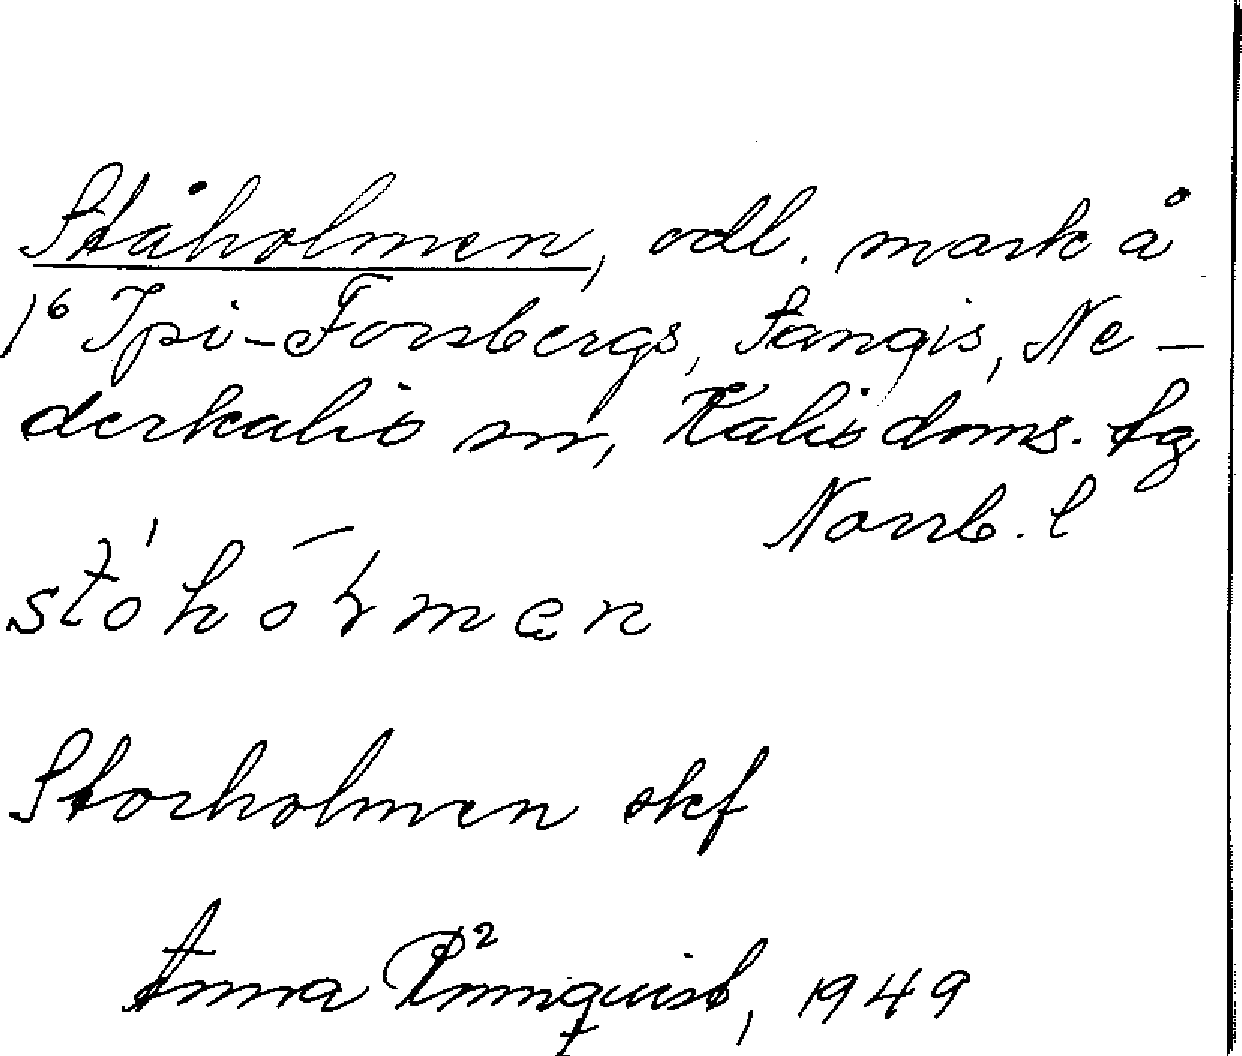 Ståholmen, odl. mark å
1⁶ Ipi-Forsbergs, Sangis, Ne-
derkalix sn, Kalix doms. tg
Norrb. l
stóhòɫmən
Storholmen skf
Anna Rönnquist², 1949